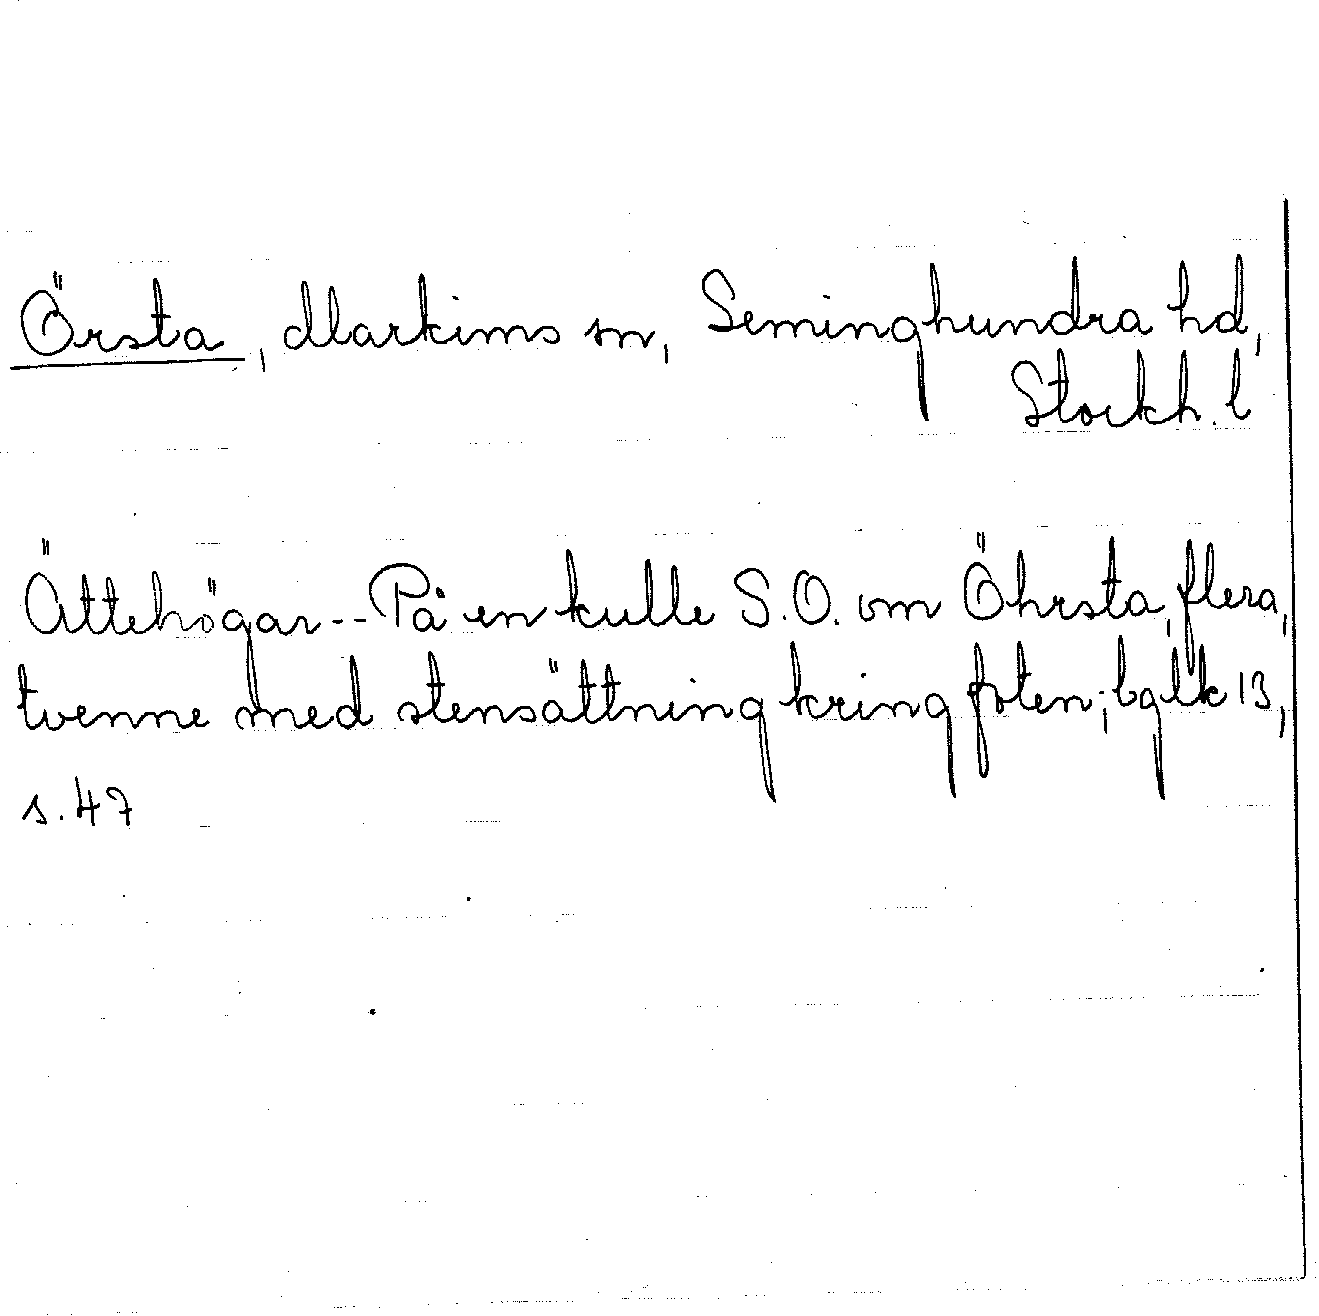 Örsta, Markims sn, Seminghundra hd,
Stockh. l
Ättehögar -- På en kulle S.O. om Öhrsta, flera,
tvenne med stensättning kring foten; bglk 13,
s. 47